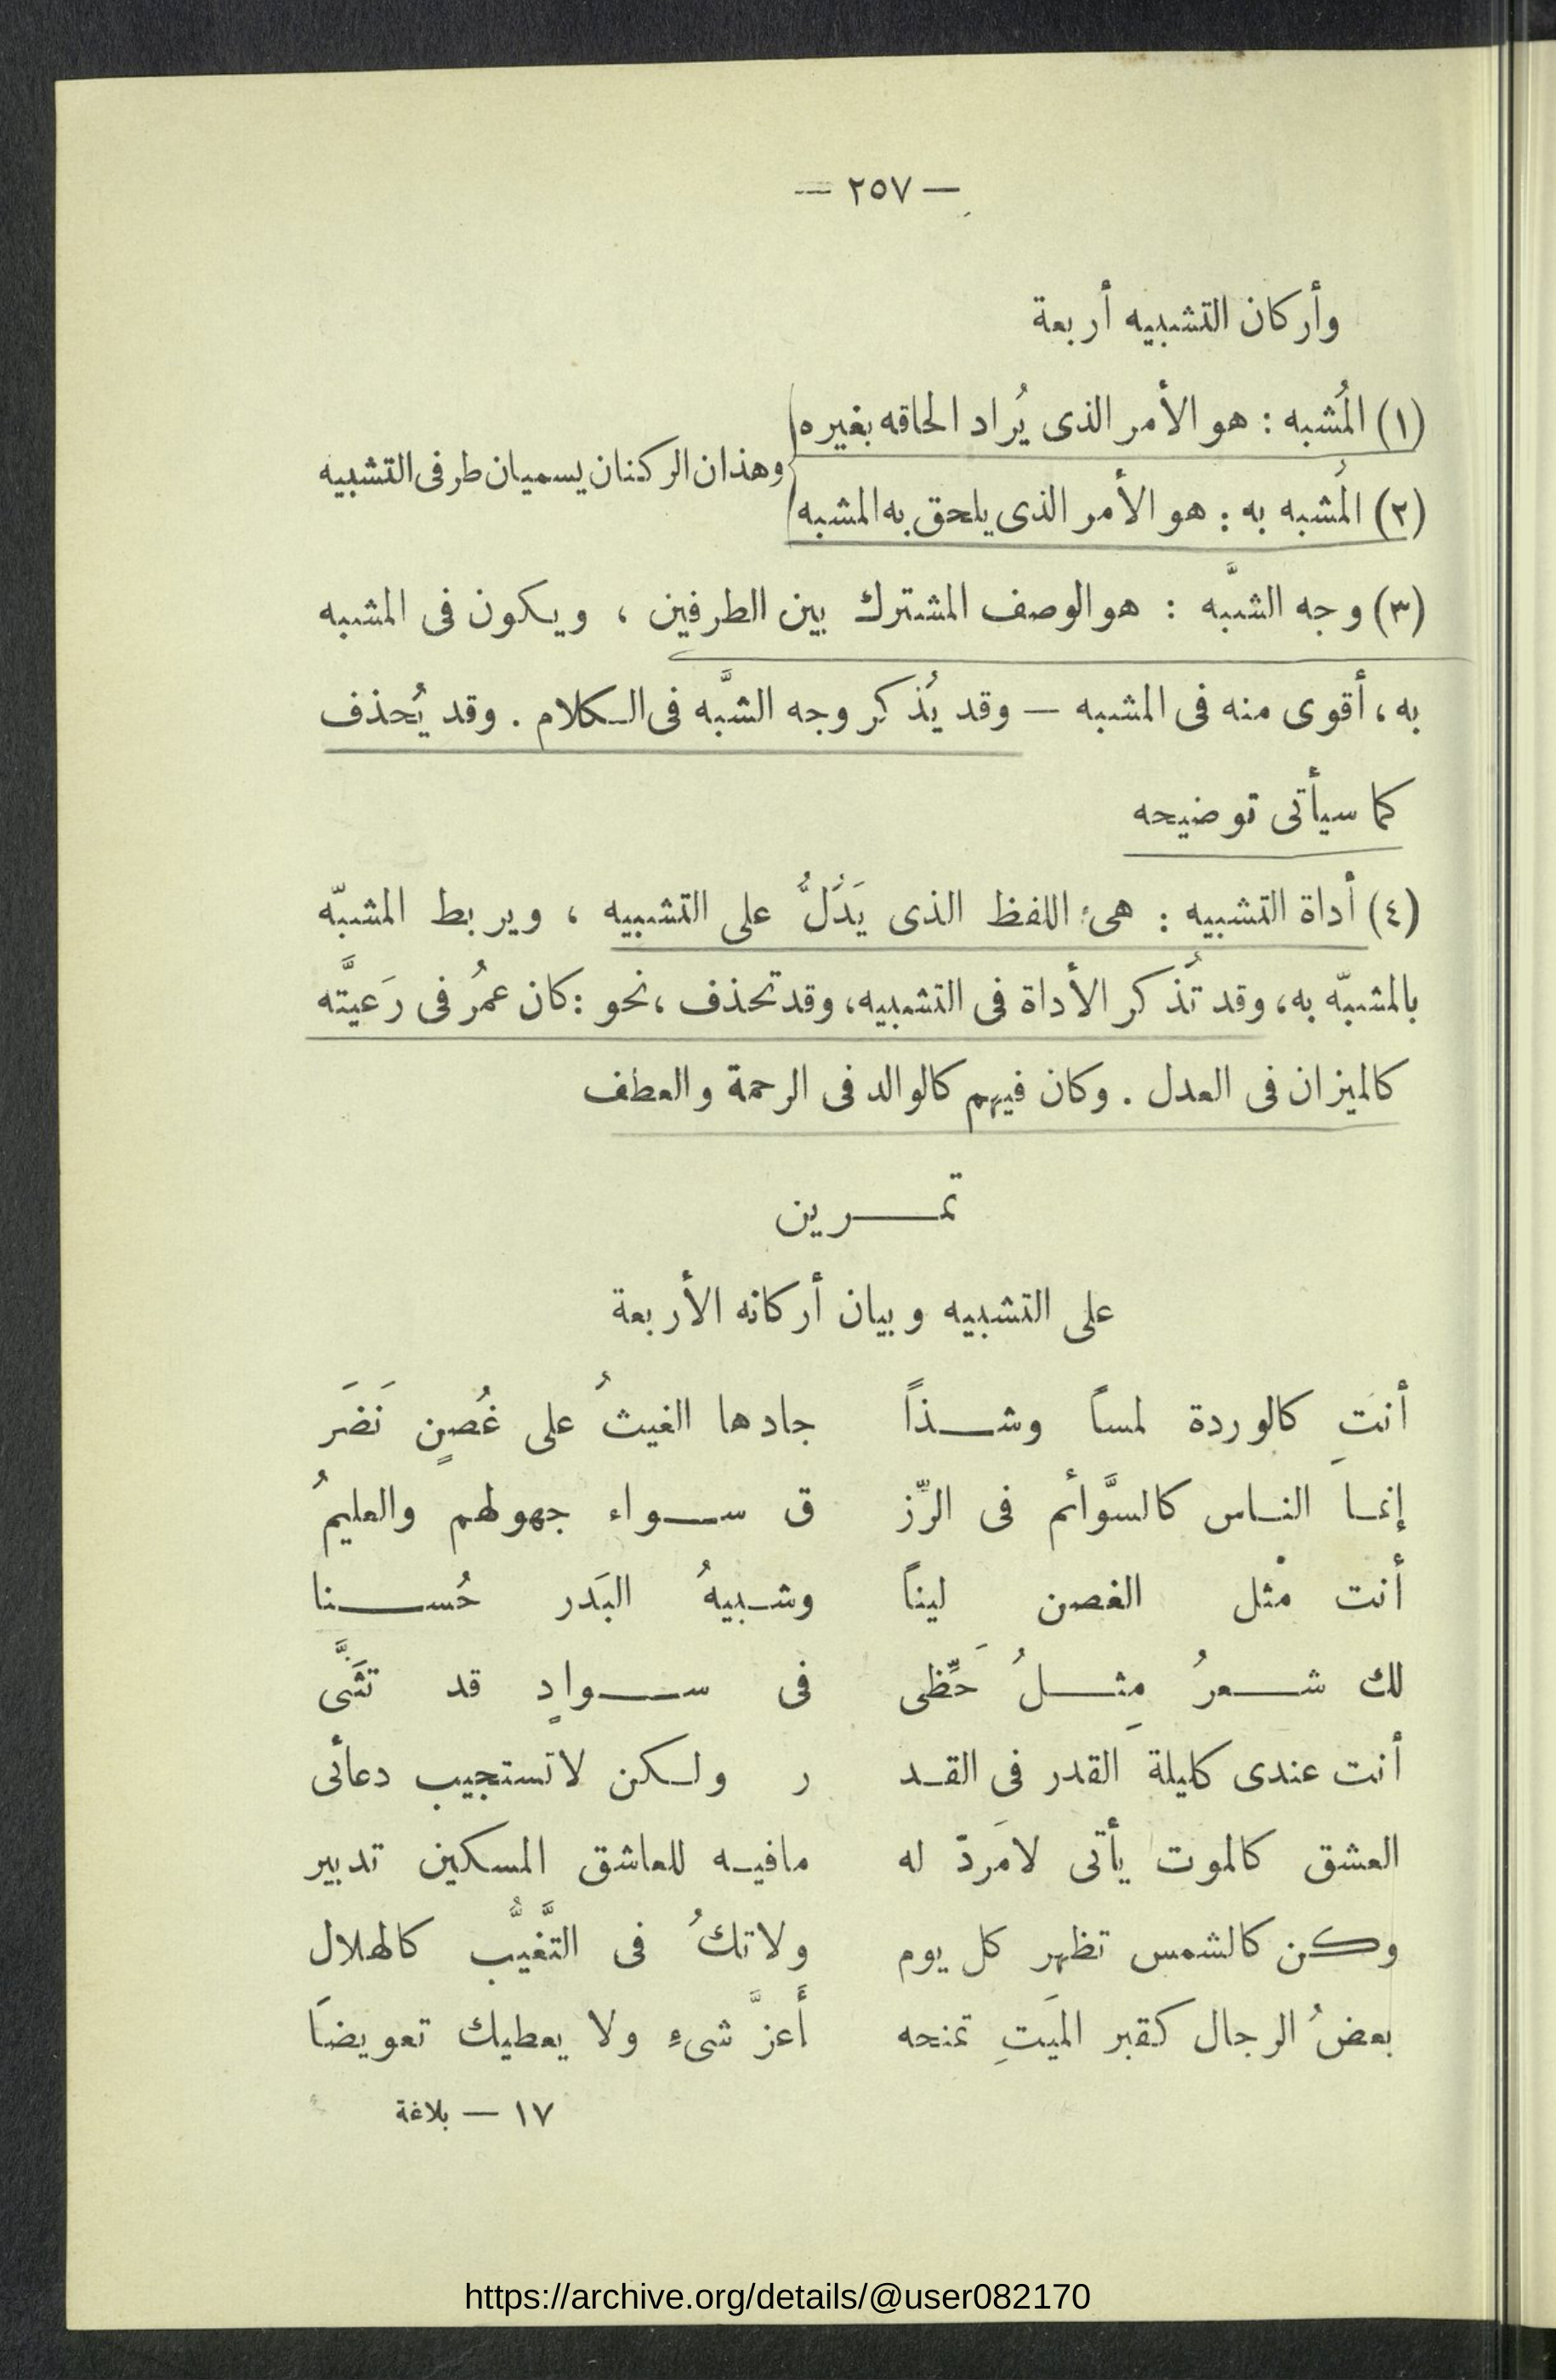 — ٢٥٧ —
وأركان التشبيه أربعة
(١) المُشبه : هو الأمر الذى يُراد الحاقه بغيره
وهذان الركنان يسميان طرفى التشبيه
(٢) المُشبه به : هو الأمر الذى يلحق به المشبه
(٣) وجه الشبَّه : هو الوصف المشترك بين الطرفين ، ويكون فى المشبه
به ، أقوى منه فى المشبه — وقد يُذكر وجه الشبَّه فى الكلام . وقد يُحذف
كما سيأتى توضيحه
(٤) أداة التشبيه : هى اللفظ الذى يَدُلُّ على التشبيه ، ويربط المشبّه
بالمشبّه به ، وقد تُذكر الأداة فى التشبيه ، وقد تحذف ، نحو : كان عمُر فى رَعيَّته
كالميزان فى العدل . وكان فيهم كالوالد فى الرحمة والعطف
تمرين
على التشبيه وبيان أركانه الأربعة
أنتِ كالوردة لمساً وشذاً جادها الغيثُ على غُصنٍ نَضَر
إنما الناس كالسوَّائم فى الرِّز ق سواء جهولهم والعليمُ
أنت مثل الغصن ليناً وشبيهُ البَدر حُسنا
لك شعرُ مِثلُ حَظِّى فى سوادٍ قد تثَنَّى
أنت عندى كليلة القدر فى القد ر ولكن لا تستجيب دعائى
العشق كالموت يأتى لا مَردّ له ما فيه للعاشق المسكين تدبير
وكن كالشمس تظهر كل يوم ولا تكُ فى التَّغيُّب كالهلال
بعضُ الرجال كقبر الميَتِ تمنحه أَعزَّ شىءٍ ولا يعطيك تعويضَا
١٧ — بلاغة
https://archive.org/details/@user082170